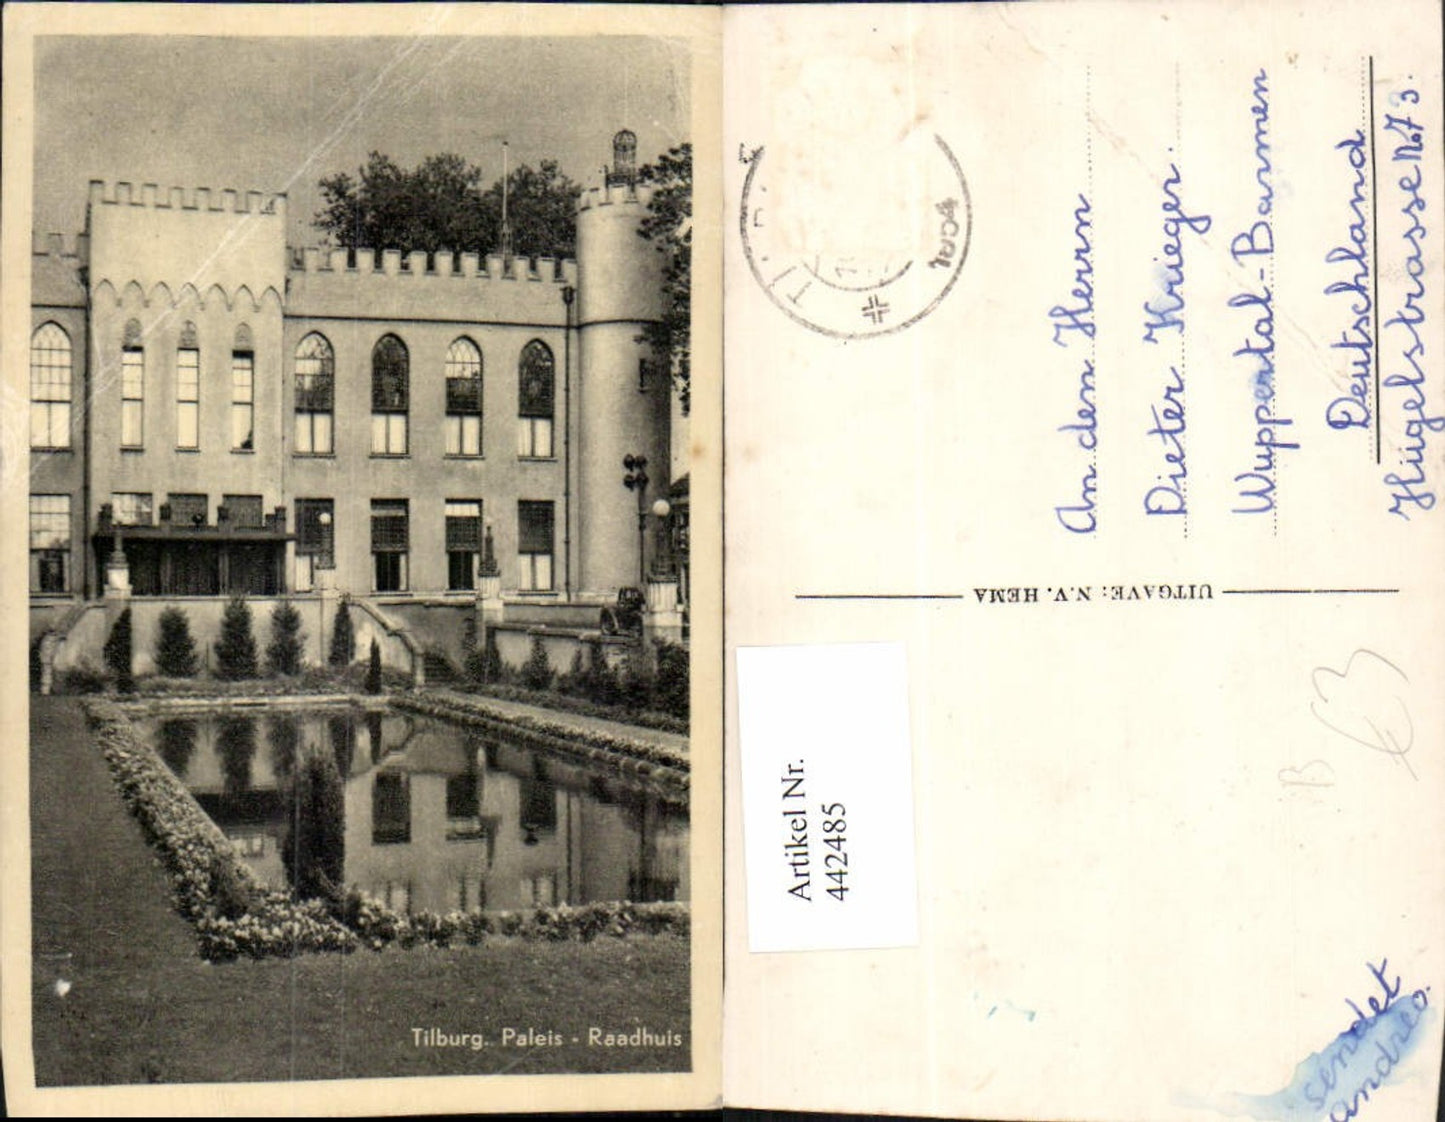 Tilburg. Paleis - Raadhuis
1954
An den Herrn
Dieter Krieger.
Wuppertal-Barmen
Deutschland
Hügelstrasse No. 73.
UITGAVE: N.V. HEMA
Artikel Nr.
442485
B
sendet